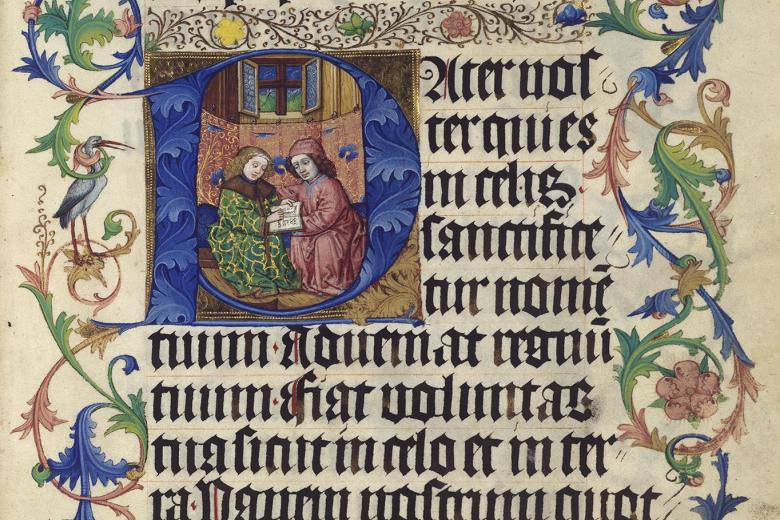 Pater nos
ter qui es
in celis.
sanctifice
tur nomē
tuum. Adveniat regnū
tuum. Fiat voluntas
tua sicut in celo et in ter
ra. Panem nostrum quot